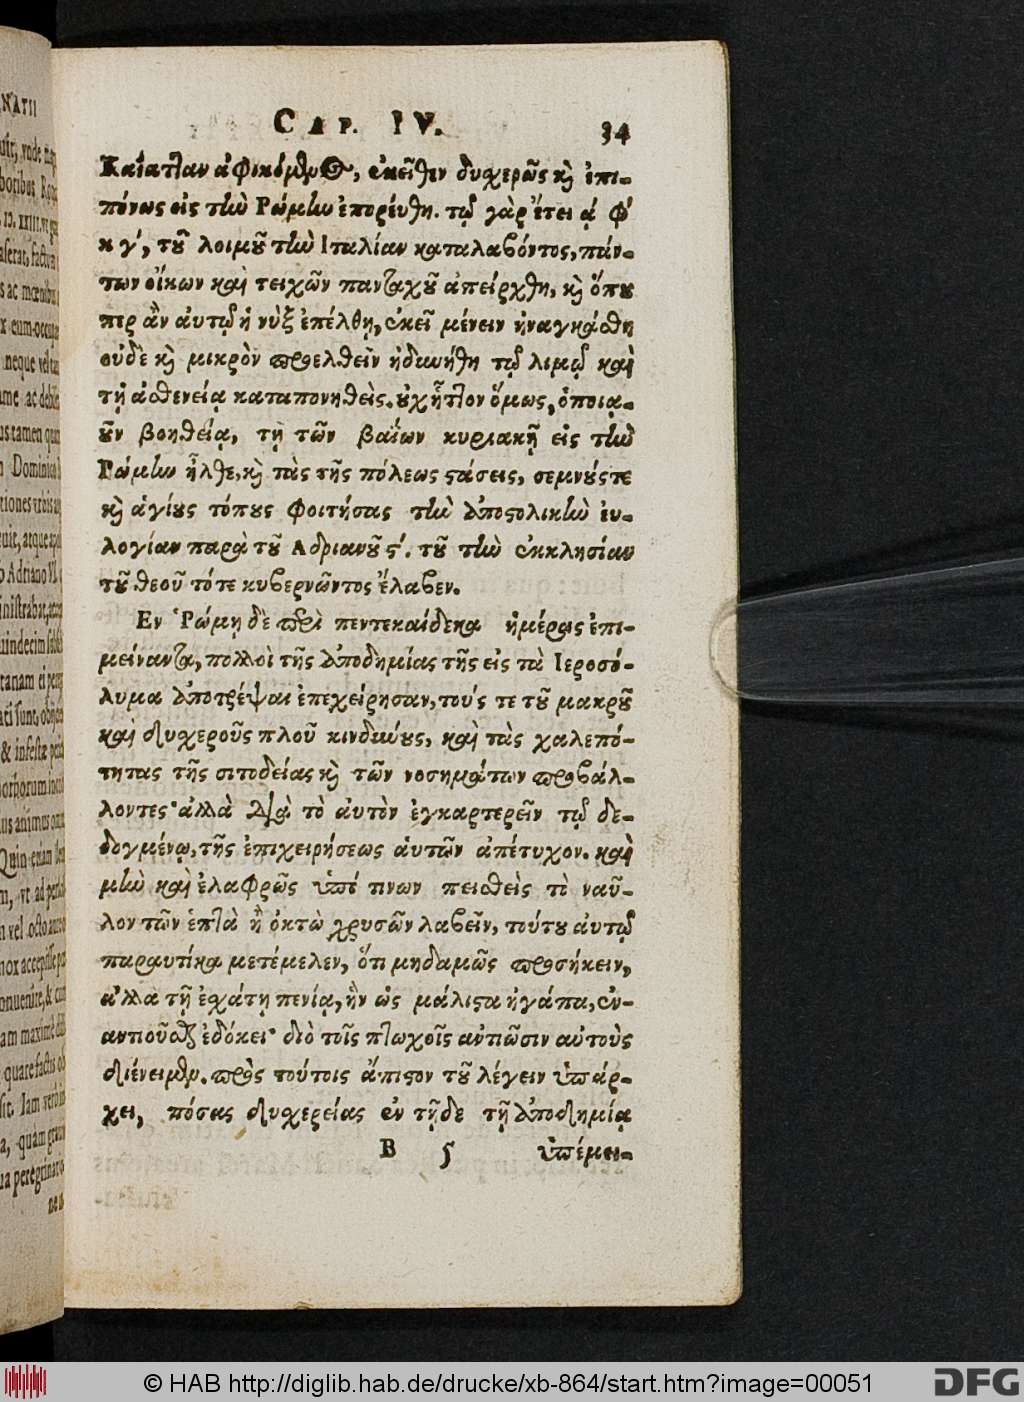 CAP. IV. 34
Καίατταν ἀφικόμενος, ἐκεῖθεν δυχερῶς καὶ ἐπι-
πόνως εἰς τὴν Ῥώμην ἐπορεύθη. τῷ γὰρ ἔτει ᾳ φ΄
κγ΄, τοῦ λοιμοῦ τὴν Ἰταλίαν καταλαβόντος, πάν-
των οἴκων καὶ τειχῶν πανταχοῦ ἀπείρχθη, καὶ ὅπου
περ ἂν αὐτῷ ἡ νὺξ ἐπέλθῃ, ἐκεῖ μένειν ἠναγκάσθη
οὐδὲ καὶ μικρὸν προελθεῖν ἠδυνήθη τῷ λιμῷ καὶ
τῇ ἀσθενείᾳ καταπονηθεὶς. οὐχ ἧττον ὅμως, ὁποιᾳ-
οῦν βοηθείᾳ, τῇ τῶν βαΐων κυριακῇ εἰς τὴν
Ῥώμην ἦλθε, καὶ τὰς τῆς πόλεως στάσεις, σεμνούς τε
καὶ ἁγίους τόπους φοιτήσας τὴν ἀποστολικὴν εὐ-
λογίαν παρὰ τοῦ Ἀδριανοῦ ϛ΄. τοῦ τὴν ἐκκλησίαν
τοῦ θεοῦ τότε κυβερνῶντος ἔλαβεν.
Ἐν Ῥώμῃ δὲ περὶ πεντεκαίδεκα ἡμέρας ἐπι-
μείναντα, πολλοὶ τῆς ἀποδημίας τῆς εἰς τὰ Ἱεροσό-
λυμα ἀποτρέψαι ἐπεχείρησαν, τούς τε τοῦ μακροῦ
καὶ δυχεροῦς πλοῦ κινδύνους, καὶ τὰς χαλεπό-
τητας τῆς σιτοδείας καὶ τῶν νοσημάτων προβάλ-
λοντες· ἀλλὰ διὰ τὸ αὐτὸν ἐγκαρτερεῖν τῷ δε-
δογμένῳ, τῆς ἐπιχειρήσεως αὑτῶν ἀπέτυχον. καὶ
μὴν καὶ ἐλαφρῶς ὑπό τινων πεισθεὶς τὸ ναῦ-
λον τῶν ἑπτὰ ἢ ὀκτὼ χρυσῶν λαβεῖν, τούτου αὐτῷ
παραυτίκα μετέμελεν, ὅτι μηδαμῶς προσήκειν,
ἀλλὰ τῇ ἐχάτῃ πενίᾳ, ἣν ὡς μάλιστα ἠγάπα, ἐν-
αντιοῦσθαι ἐδόκει· διὸ τοῖς πτωχοῖς αἰτῶσιν αὐτοὺς
διένειμεν. πρὸς τούτοις ἄπιστον τοῦ λέγειν ὑπάρ-
χει, πόσας δυχερείας ἐν τῇδε τῇ ἀποδημίᾳ
B 5 ὑπέμει-
© HAB http://diglib.hab.de/drucke/xb-864/start.htm?image=00051
DFG